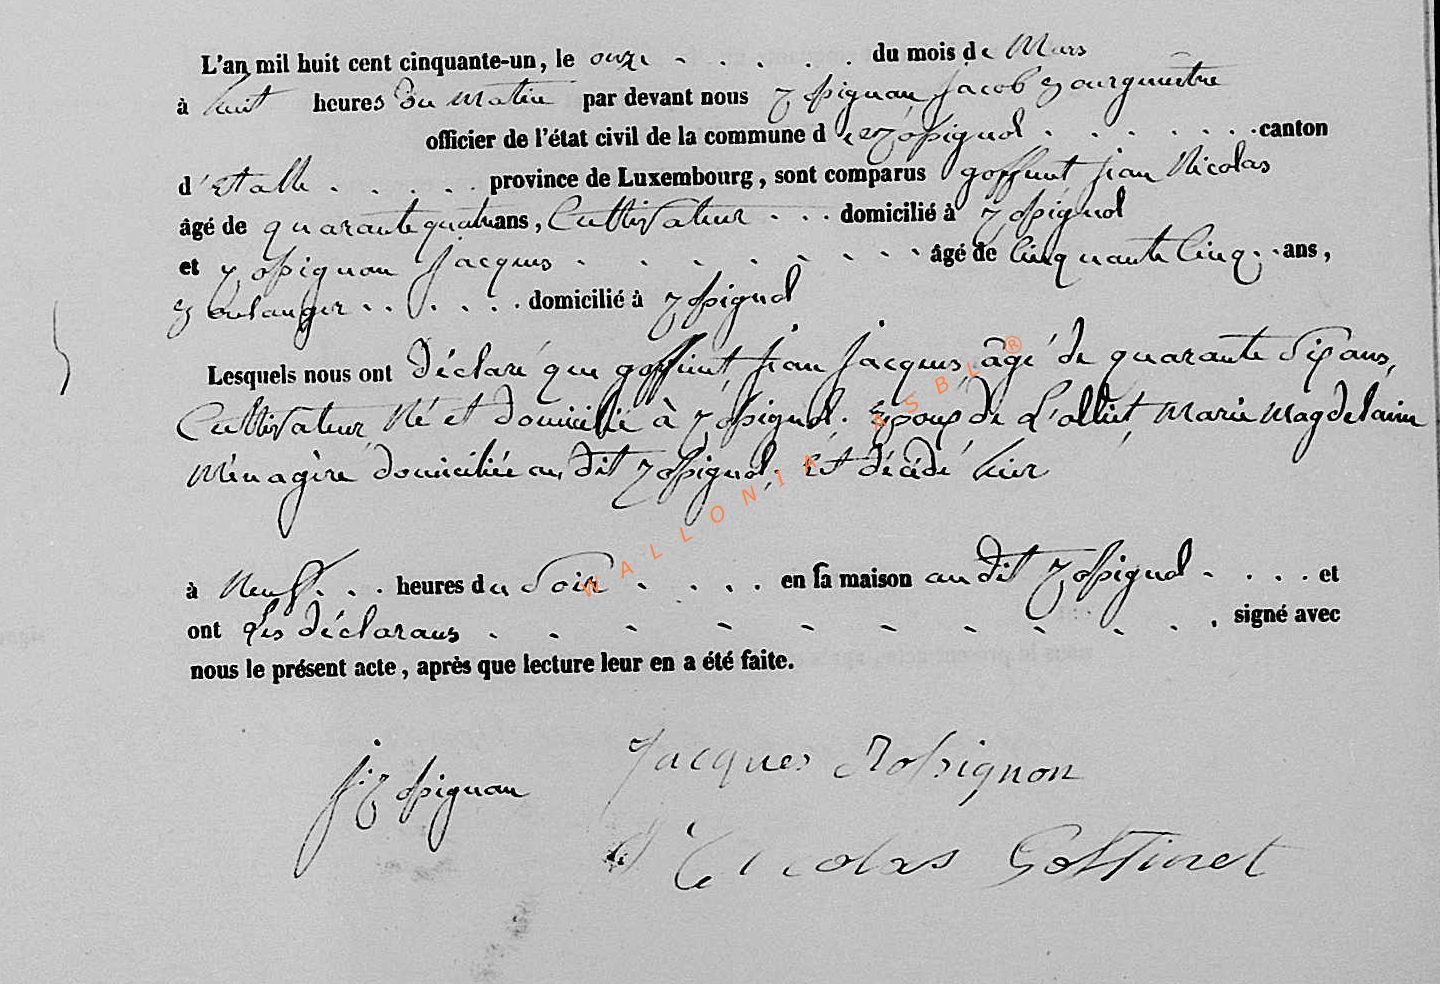 L'an mil huit cent cinquante-un, le onze . . . . . . du mois de Mars
à huit heures du matin par devant nous Rossignon Jacob Bourgmestre
officier de l'état civil de la commune de Rossignol . . . . . . . canton
d'Etalle . . . . . province de Luxembourg, sont comparus goffinet jean Nicolas
âgé de quarante quatre ans, Cultivateur . . . domicilié à Rossignol
et Rossignon Jacques . . . . . . . . . âgé de Cinquante Cinq . . ans,
Boulanger . . . . . . domicilié à Rossignol
Lesquels nous ont déclaré que goffinet jean jacques, âgé de quarante six ans,
Cultivateur, Né et domicilié à Rossignol. Epoux de Marie Magdelaine
Ménagère domiciliée au dit Rossignol, Est décédé hier
à Neuf . . . heures du Soir . . . . en sa maison au dit Rossignol . . . . et
ont les déclarans . . . . . . . . . . . signé avec
nous le présent acte, après que lecture leur en a été faite.
j: Rossignon
Jacques Rossignon
Nicolas Goffinet
WALLONIA ASBL ®